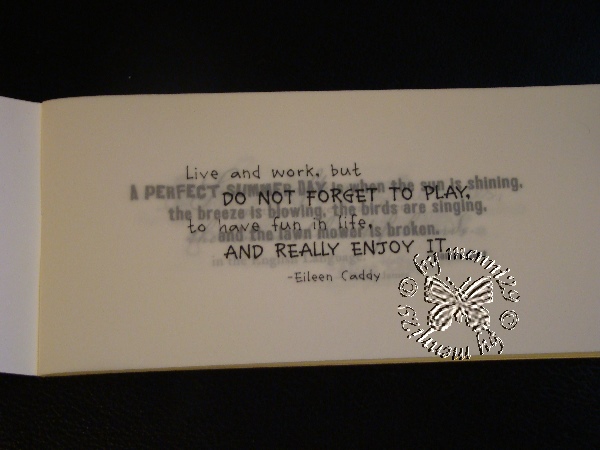 Live and work, but
DO NOT FORGET TO PLAY,
to have fun in life,
AND REALLY ENJOY IT.
-Eileen Caddy
A PERFECT SUMMER DAY is when the sun is shining,
the breeze is blowing, the birds are singing,
and the lawn mower is broken.
in the English Language
© by menni29 © by menni29